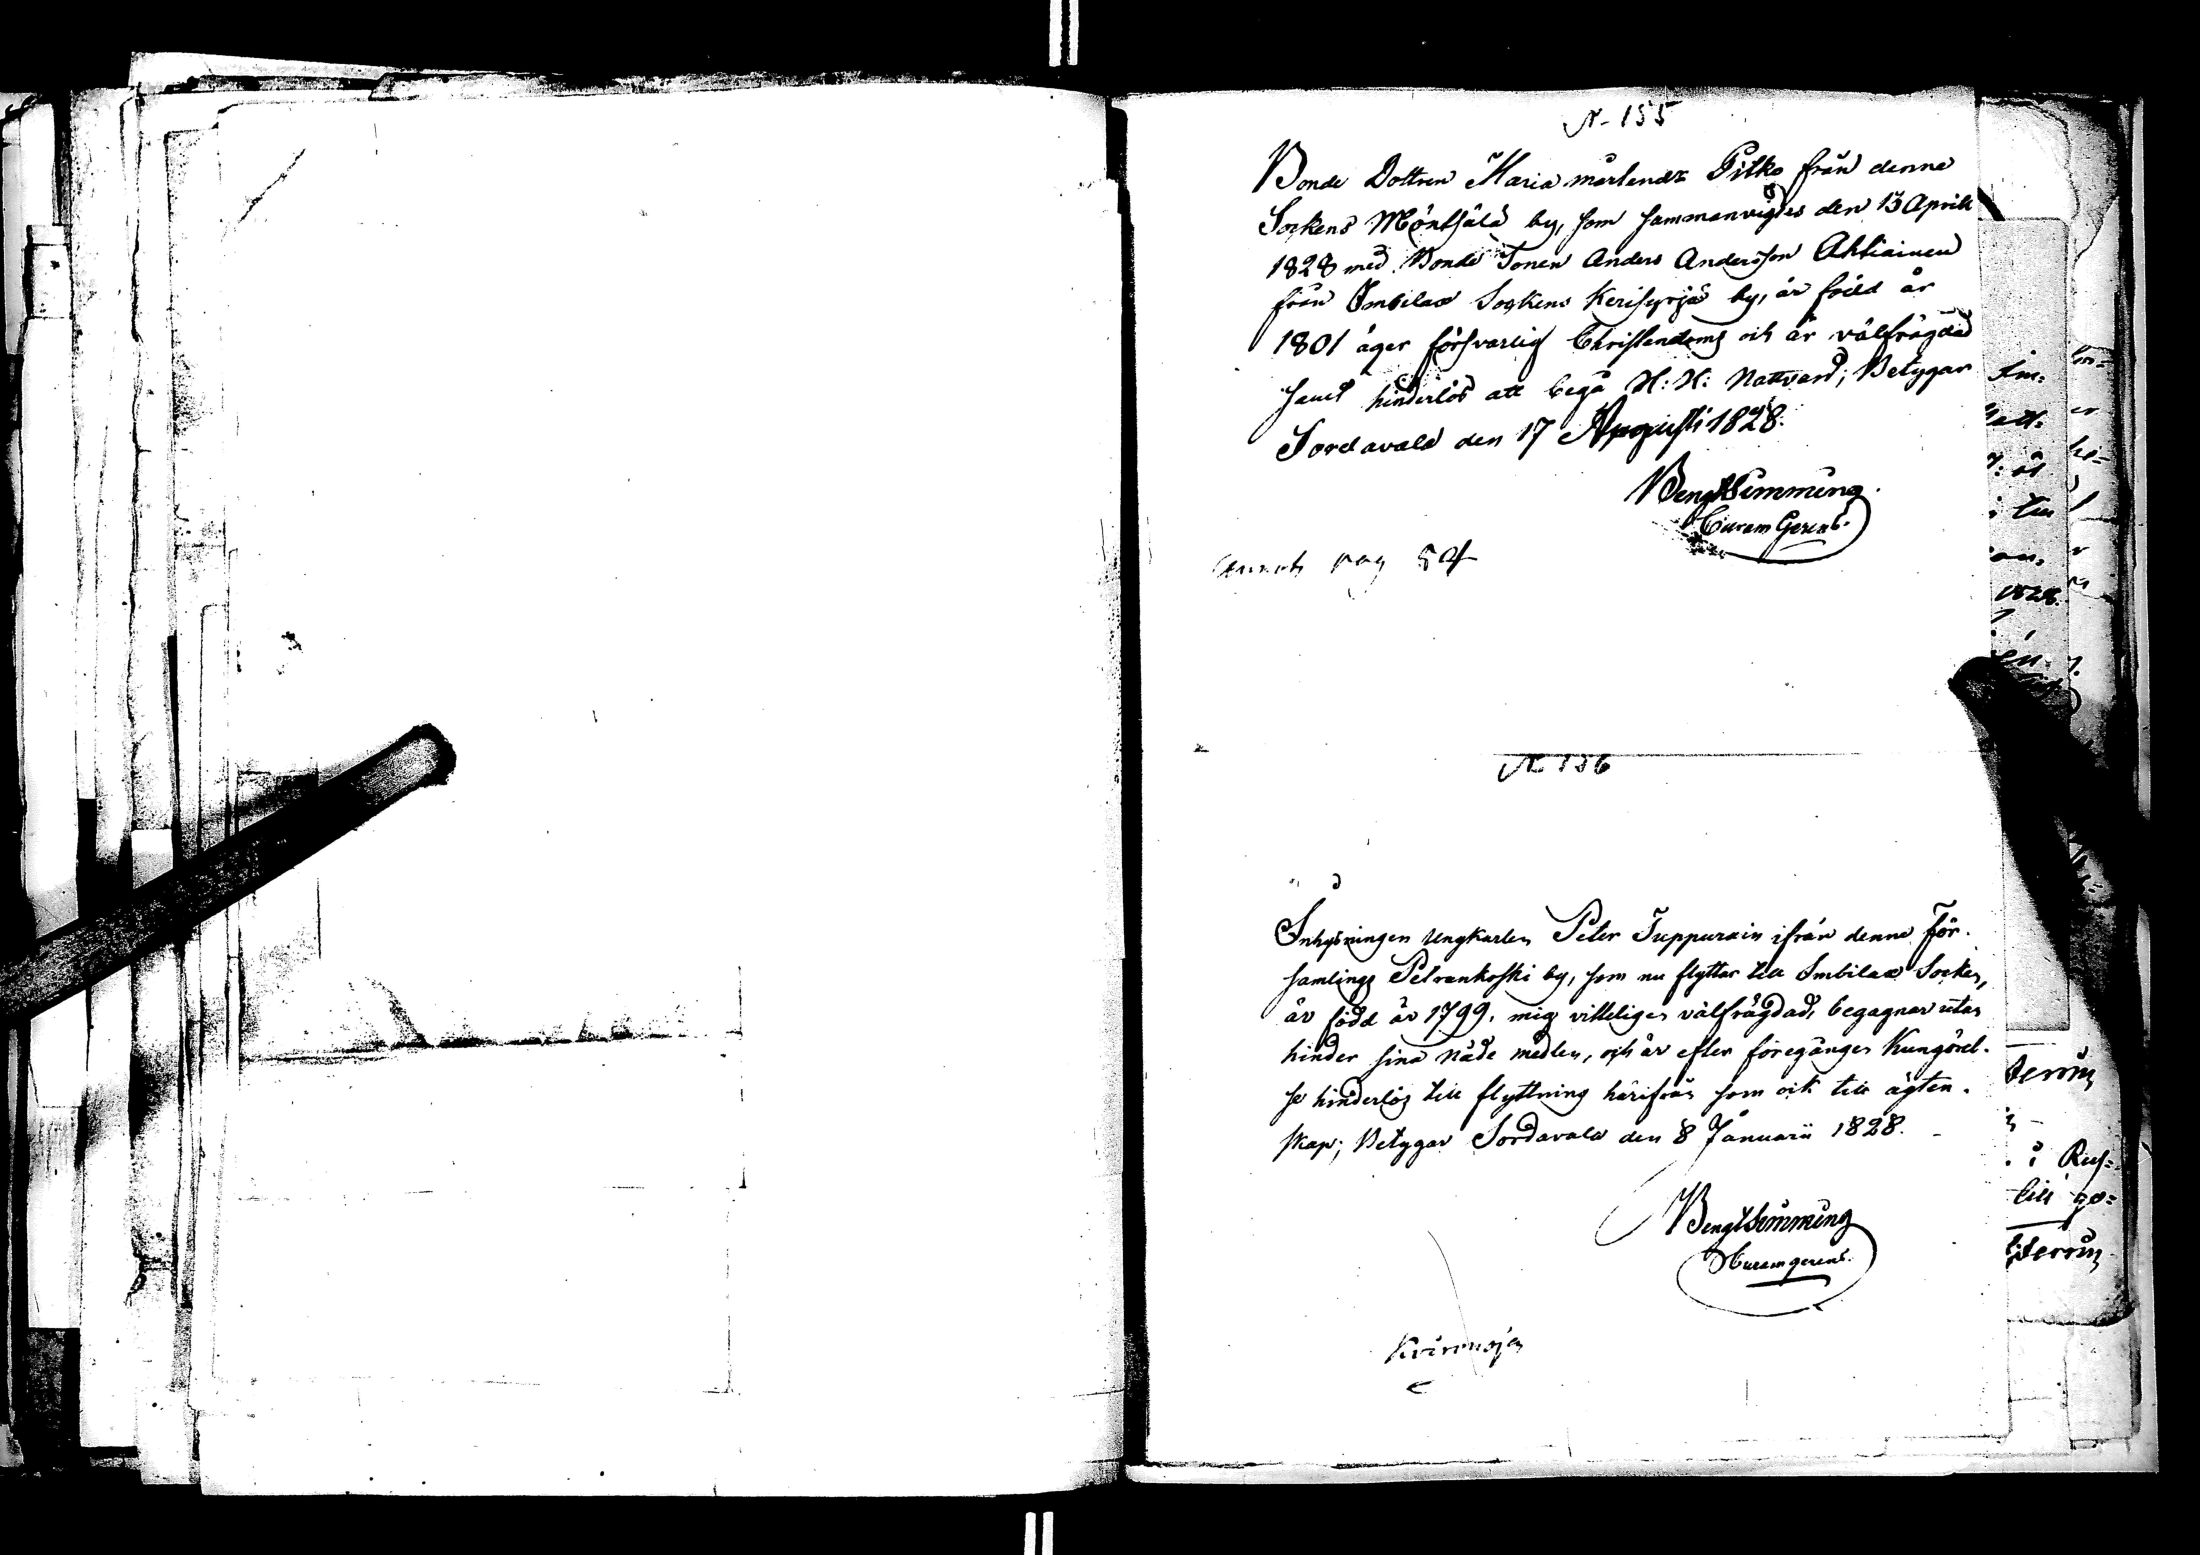 N. 155
Bonde Dottren Maria Mårtendr Pitko från denne
Sockens Möntsälä by, som sammanvigdes den 13 Aprill
1828 med Bonde Sonen Anders Andersson Ahtiainen
från Imbilax Sockens Kerisyrjä by, är född år
1801 äger försvarlig Christendoms och är välfrägdad
samt hinderlös att begå H: H: Nattvard; Betygar
Sordavala den 17 Augusti 1828.
Bengt Simming.
Curam Gerens.
pag 54
N 156
Inhysningen Ungkarlen Peter Tuppurain ifrån denne För-
samlings Petrankoski by, som nu flyttar till Imbilax Socken,
är född år 1799. mig vitteligen välfrägdad, begagnar utan
hinder sina Nåde medlen, och är efter föregången Kungörel-
se hinderlös till flyttning härifrån som ock till ägten-
skap; Betygar Sordavala den 8 Januarii 1828.
Bengt Simming
Curam gerens.